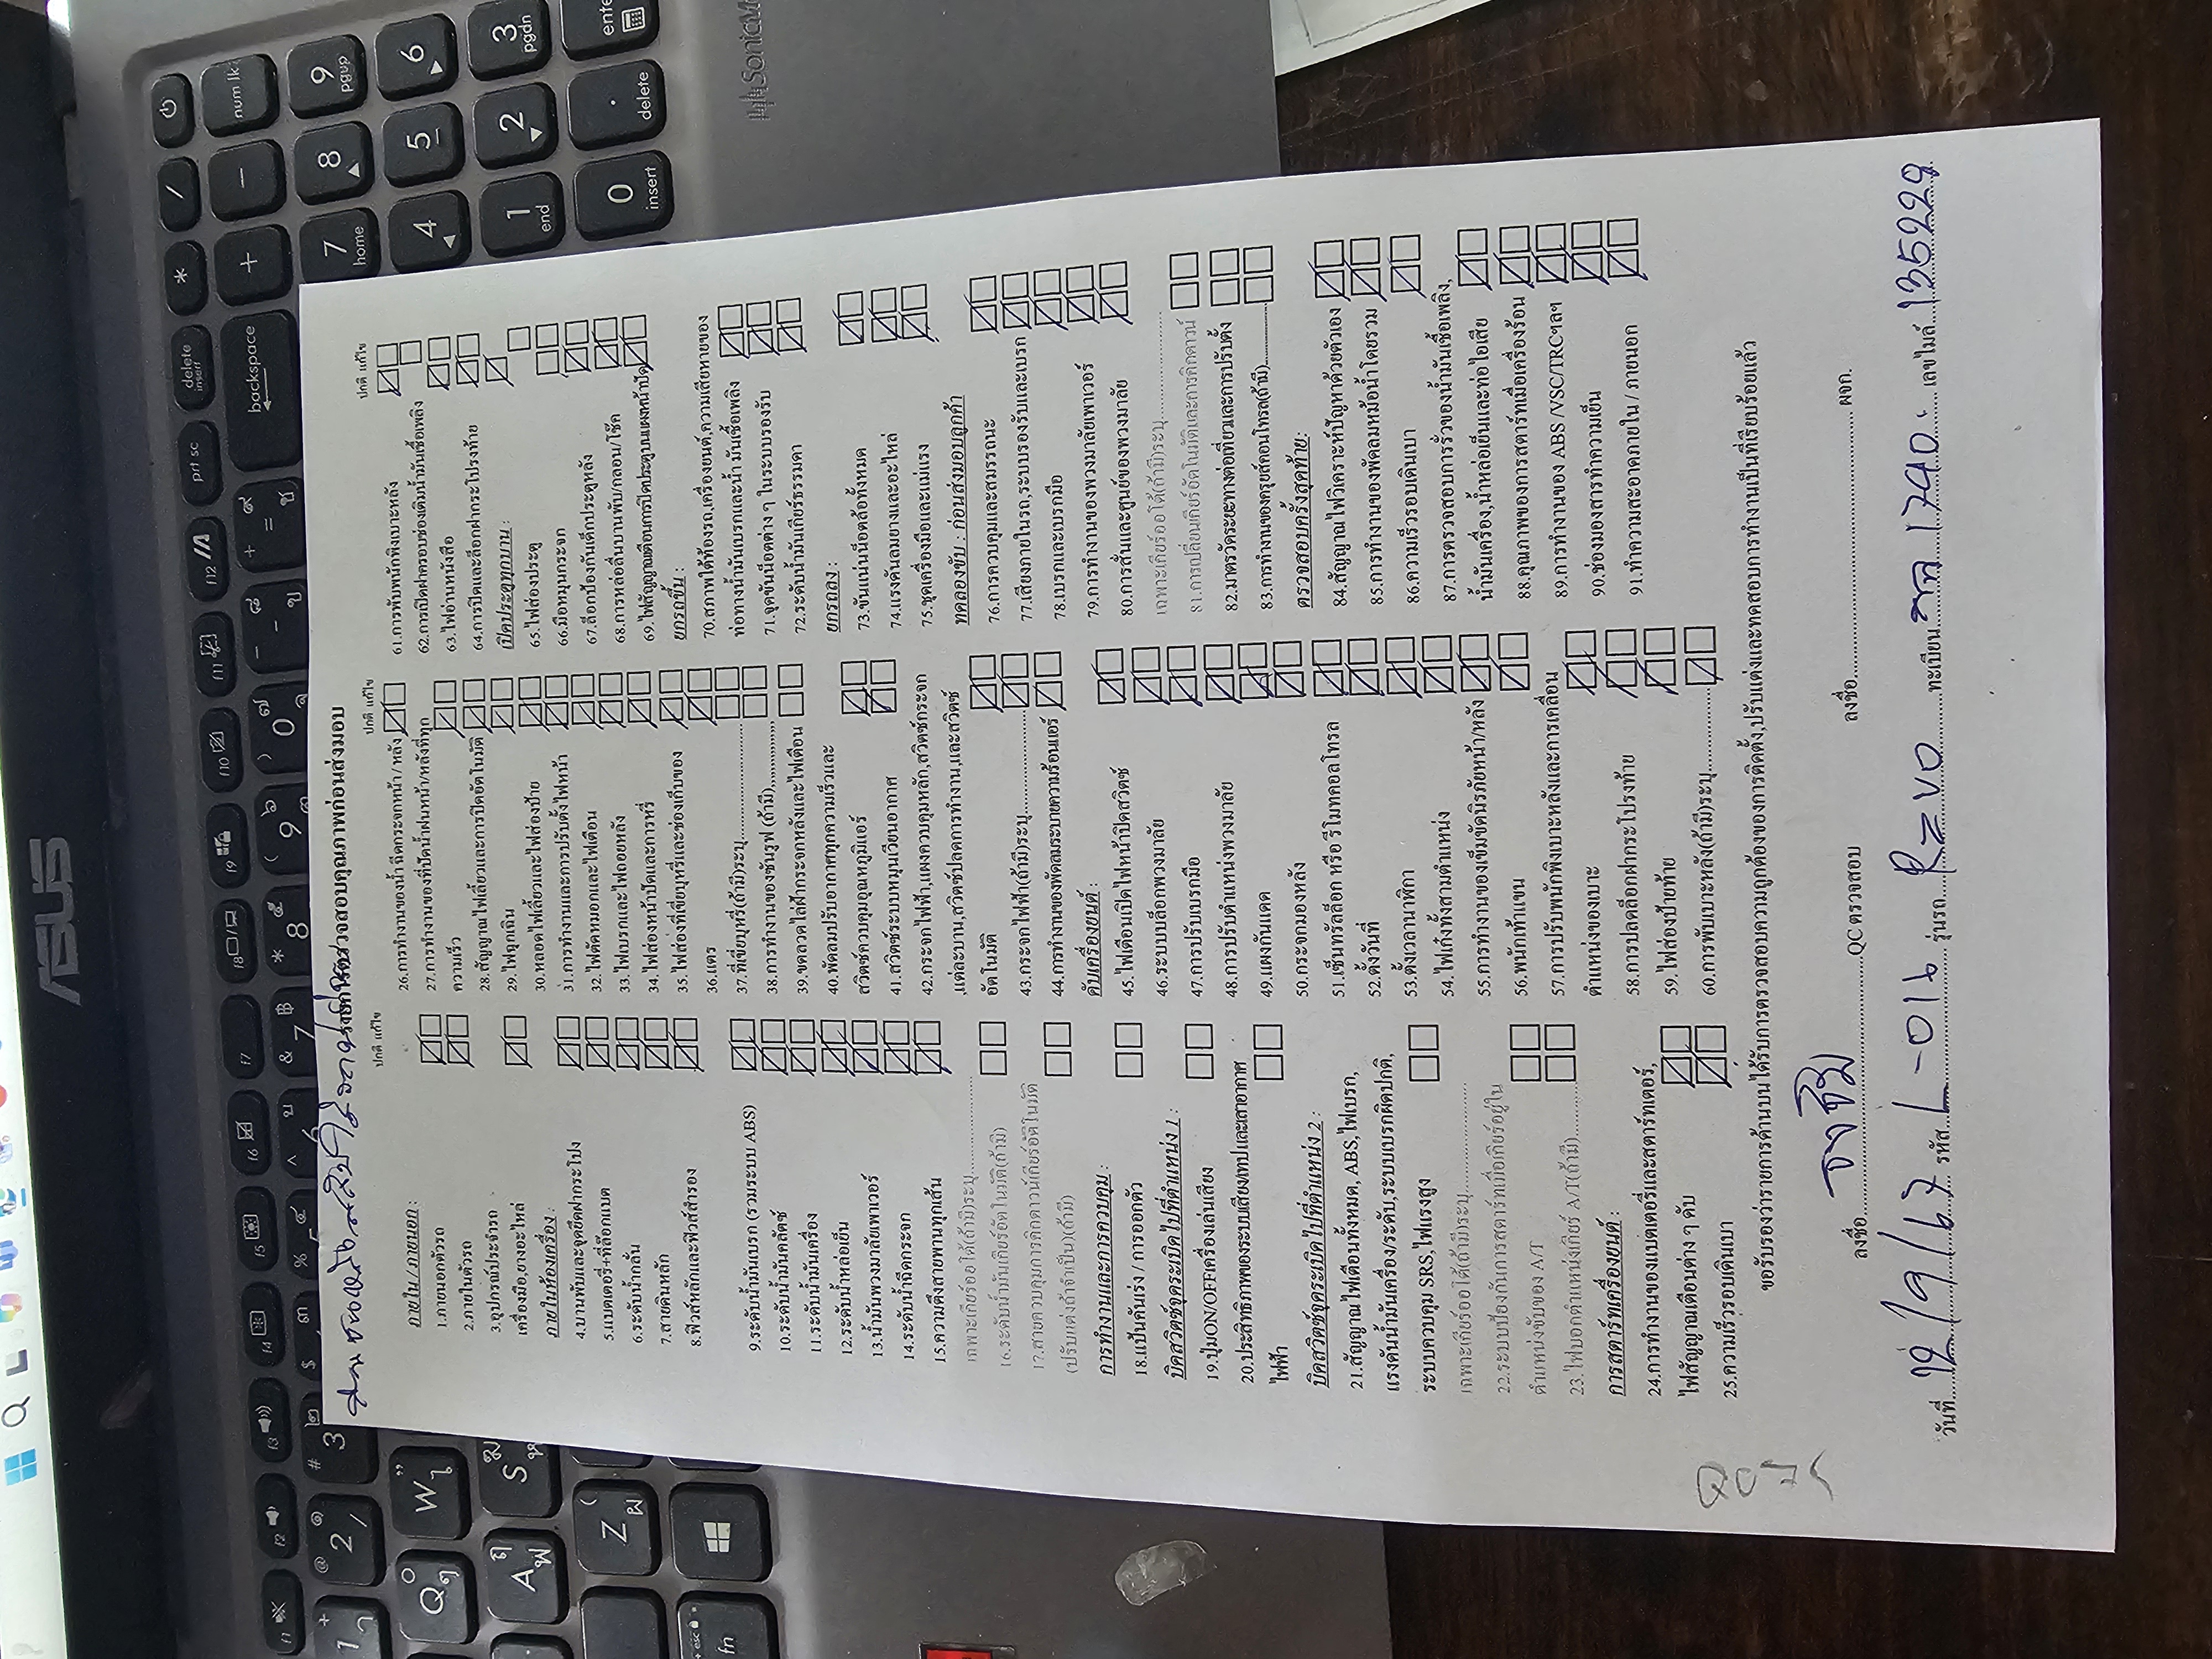 รายการตรวจสอบคุณภาพก่อนส่งมอบ
ปกติ แก้ไข
ภายใน / ภายนอก :
1.ภายนอกตัวรถ
2.ภายในตัวรถ
3.อุปกรณ์ประจำรถ
เครื่องมือ,ยางอะไหล่
ภายในห้องเครื่อง :
4.บานพับและจุดยึดฝากระโปง
5.แบตเตอรี่+ที่ล๊อกแบต
6.ระดับน้ำกลั่น
7.สายดินหลัก
8.ฟิวส์หลักและฟิวส์สำรอง
9.ระดับน้ำมันเบรก (รวมระบบ ABS)
10.ระดับน้ำมันคลัตช์
11.ระดับน้ำมันเครื่อง
12.ระดับน้ำหล่อเย็น
13.น้ำมันพวงมาลัยเพาเวอร์
14.ระดับน้ำฉีดกระจก
15.ความตึงสายพานทุกเส้น
เฉพาะเกียร์ออโต้(ถ้ามี)ระบุ..........
16.ระดับน้ำมันเกียร์อัตโนมัติ(ถ้ามี)
17.สายควบคุมการคิกดาวน์เกียร์อัตโนมัติ
(ปรับแต่งถ้าจำเป็น)(ถ้ามี)
การทำงานและการควบคุม :
18.แป้นคันเร่ง / การออกตัว
บิดสวิตช์จุดระเบิดไปที่ตำแหน่ง 1 :
19.ปุ่มON/OFFเครื่องเล่นเสียง
20.ประสิทธิภาพของระบบเสียงเทปและเสาอากาศ
ไฟฟ้า
บิดสวิตช์จุดระเบิดไปที่ตำแหน่ง 2 :
21.สัญญาณไฟเตือนทั้งหมด, ABS,ไฟเบรก,
แรงดันน้ำมันเครื่อง/ระดับ,ระบบเบรกผิดปกติ,
ระบบควบคุม SRS,ไฟแรงสูง
เฉพาะเกียร์ออโต้(ถ้ามี)ระบุ..........
22.ระบบป้องกันการสตาร์ทเมื่อเกียร์อยู่ใน
ตำแหน่งขับของ A/T
23.ไฟบอกตำแหน่งเกียร์ A/T(ถ้ามี)..........
การสตาร์ทเครื่องยนต์ :
24.การทำงานของแบตเตอรี่และสตาร์ทเตอร์,
ไฟสัญญาณเตือนต่าง ๆ ดับ
25.ความเร็วรอบเดินเบา
ปกติ แก้ไข
26.การทำงานของน้ำฉีดกระจกหน้า / หลัง
27.การทำงานของที่ปัดน้ำฝนหน้า/หลังที่ทุก
ความเร็ว
28.สัญญาณไฟเลี้ยวและการปิดอัตโนมัติ
29.ไฟฉุกเฉิน
30.หลอดไฟเลี้ยวและไฟส่องป้าย
31.การทำงานและการปรับตั้งไฟหน้า
32.ไฟตัดหมอกและไฟเตือน
33.ไฟเบรกและไฟถอยหลัง
34.ไฟส่องหน้าปัดและการหรี่
35.ไฟส่องที่เขี่ยบุหรี่และช่องเก็บของ
36.แตร
37.ที่เขี่ยบุหรี่(ถ้ามี)ระบุ..........
38.การทำงานของซันรูฟ (ถ้ามี)..........
39.ขดลวดไล่ฝ้ากระจกหลังและไฟเตือน
40.พัดลมปรับอากาศทุกความเร็วและ
สวิตช์ควบคุมอุณหภูมิแอร์
41.สวิตช์ระบบหมุนเวียนอากาศ
42.กระจกไฟฟ้า,แผงควบคุมหลัก,สวิตช์กระจก
,แต่ละบาน,สวิตช์ปลดการทำงาน,และสวิตช์
อัตโนมัติ
43.กระจกไฟฟ้า(ถ้ามี)ระบุ..........
44.การทำงานของพัดลมระบายความร้อนแอร์
ดับเครื่องยนต์ :
45.ไฟเตือนเปิดไฟหน้าปิดสวิตช์
46.ระบบบล็อกพวงมาลัย
47.การปรับเบรกมือ
48.การปรับตำแหน่งพวงมาลัย
49.แผงกันแดด
50.กระจกมองหลัง
51.เซ็นทรัลล็อก หรือ รีโมทคอลโทรล
52.ตั้งวันที่
53.ตั้งเวลานาฬิกา
54.ไฟเก๋งทั้งสามตำแหน่ง
55.การทำงานของเข็มขัดนิรภัยหน้า/หลัง
56.พนักเท้าแขน
57.การปรับพนักพิงเบาะหลังและการเคลื่อน
ตำแหน่งของเบาะ
58.การปลดล็อกฝากระโปรงท้าย
59.ไฟส่องป้ายท้าย
60.การพับเบาะหลัง(ถ้ามี)ระบุ..........
ปกติ แก้ไข
61.การพับพนักพิงเบาะหลัง
62.การเปิดฝาครอบช่องเติมน้ำมันเชื้อเพลิง
63.ไฟอ่านหนังสือ
64.การปิดและล็อกฝากระโปรงท้าย
เปิดประตูทุกบาน :
65.ไฟส่องประตู
66.มือหมุนกระจก
67.ล็อกป้องกันเด็กประตูหลัง
68.การหล่อลื่นบานพับ/กลอน/โช๊ค
69.ไฟสัญญาณเตือนการปิดประตูบนแผงหน้าปัด
ยกรถขึ้น :
70.สภาพใต้ท้องรถ,เครื่องยนต์,ความเสียหายของ
ท่อทางน้ำมันเบรกและน้ำ มันเชื้อเพลิง
71.จุดขันน็อตต่าง ๆ ในระบบรองรับ
72.ระดับน้ำมันเกียร์ธรรมดา
ยกรถลง :
73.ขันแน่นน็อตล้อทั้งหมด
74.แรงดันลมยางและอะไหล่
75.ชุดเครื่องมือและแม่แรง
ทดลองขับ : ก่อนส่งมอบลูกค้า
76.การควบคุมและสมรรถนะ
77.เสียงภายในรถ,ระบบรองรับและเบรก
78.เบรกและเบรกมือ
79.การทำงานของพวงมาลัยเพาเวอร์
80.การสั่นและศูนย์ของพวงมาลัย
เฉพาะเกียร์ออโต้(ถ้ามี)ระบุ..........
81.การเปลี่ยนเกียร์อัตโนมัติและการคิกดาวน์
82.มาตรวัดระยะทางต่อเที่ยวและการปรับตั้ง
83.การทำงานของครุยส์คอนโทรล(ถ้ามี)..........
ตรวจสอบครั้งสุดท้าย:
84.สัญญาณไฟวิเคราะห์ปัญหาด้วยตัวเอง
85.การทำงานของพัดลมหม้อน้ำโดยรวม
86.ความเร็วรอบเดินเบา
87.การตรวจสอบการรั่วของน้ำมันเชื้อเพลิง,
น้ำมันเครื่อง,น้ำหล่อเย็นและท่อไอเสีย
88.คุณภาพของการสตาร์ทเมื่อเครื่องร้อน
89.การทำงานของ ABS /VSC/TRCฯลฯ
90.ช่องมองสารทำความเย็น
91.ทำความสะอาดภายใน / ภายนอก
ขอรับรองว่ารายการด้านบนได้รับการตรวจสอบความถูกต้องของการติดตั้ง,ปรับแต่งและทดสอบการทำงานเป็นที่เรียบร้อยแล้ว
ลงชื่อ..........QCตรวจสอบ ลงชื่อ.......... ผจก.
วันที่ 12/9/67 รหัส L-016 รุ่นรถ Revo ทะเบียน 1740 เลขไมล์ 135229
ASUS